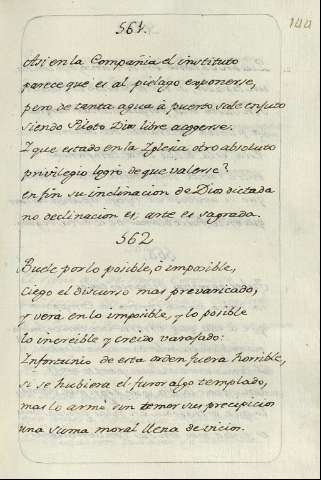 561.
144
Asi en la Compañia el instituto
parece que es al pielago exponerse,
pero de tanta agua à puerto sale enjuto
siendo Piloto Dios libre acogerse.
I que estado en la Iglesia otro absoluto
privilegio logró de que valerse?
en fin su inclinacion de Dios dictada
no declinacion es, ante es sagrada.
562
Buele por lo posible, ò imposible,
ciego el discurso mas prevaricado,
y verà en lo imposible, y lo posible
lo increible y creido
Infortunio de esta orden fuera horrible,
si se hubiera el furor algo templado,
mas lo armó sin temor sus precipicios
una suma moral llena de vicios.